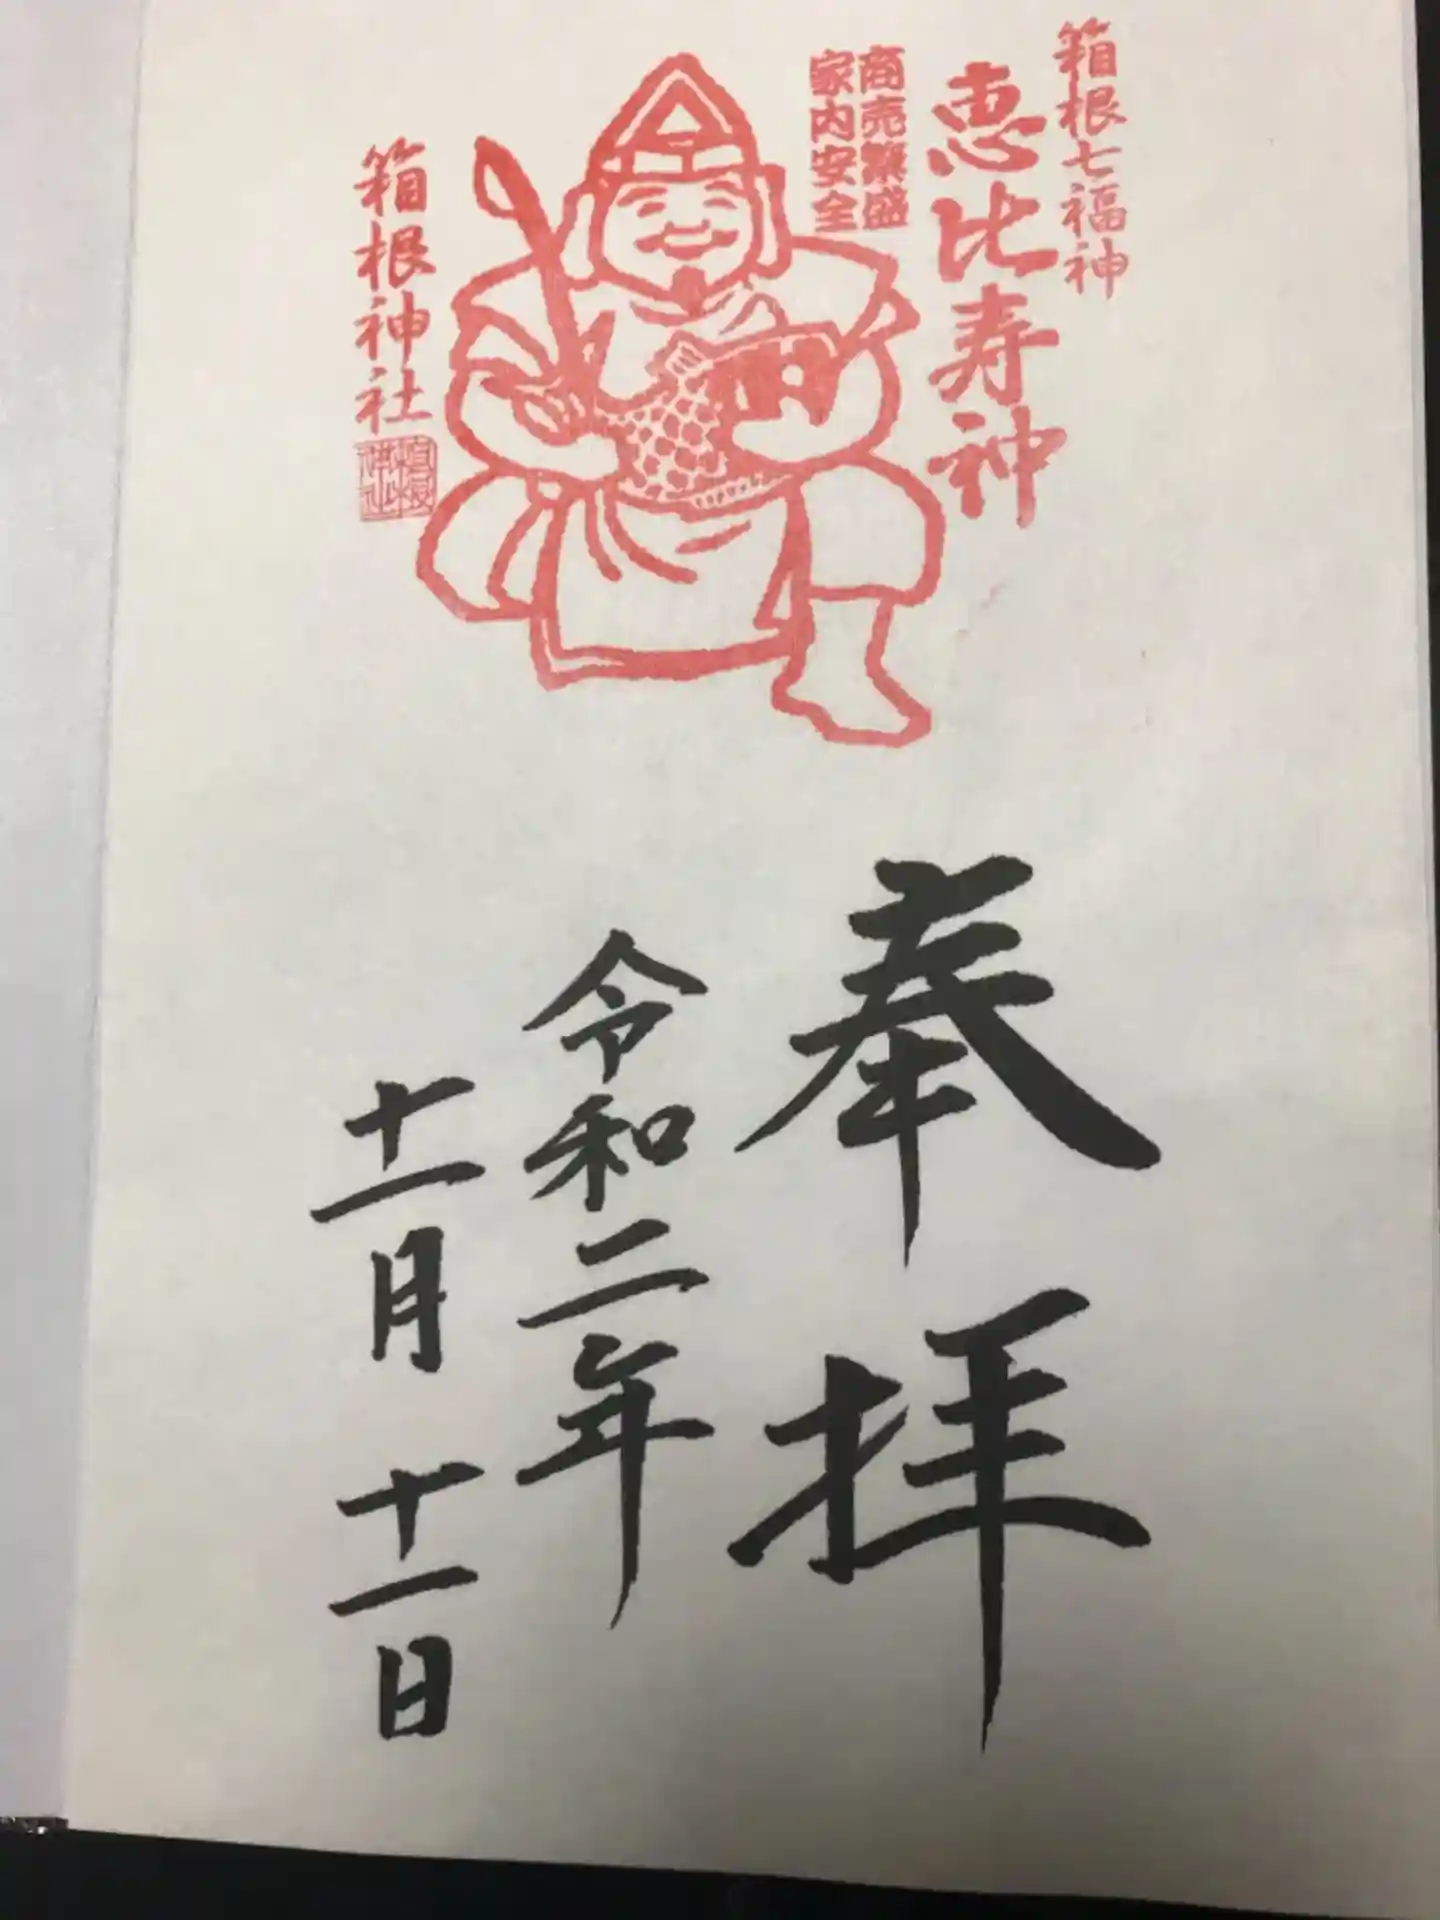 箱根七福神
恵比寿神
商売繁盛
家内安全
箱根神社
奉拝
令和二年
十一月十一日